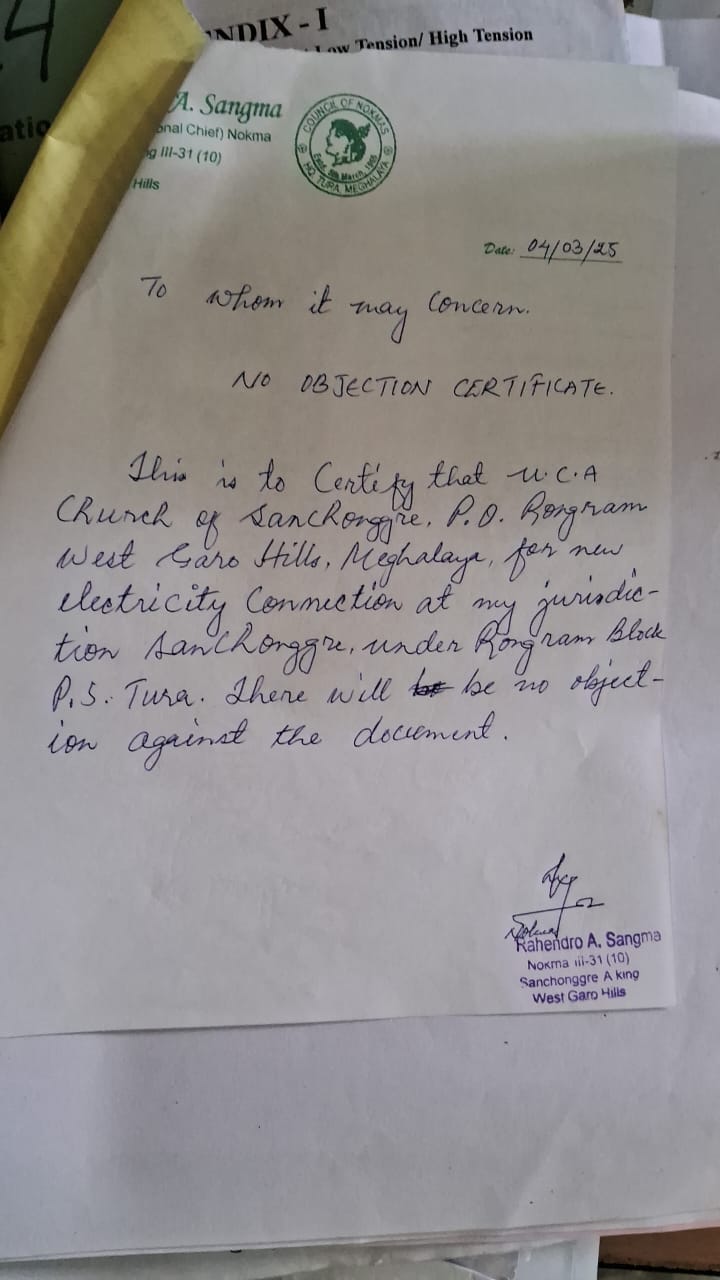 4
NDIX - I
Low Tension/ High Tension
atio
A. Sangma
onal Chief) Nokma
g III-31 (10)
Hills
COUNCIL OF NOKMAS
HQ. TURA, MEGHALAYA
Date: 04/03/25
To whom it may Concern.
NO OBJECTION CERTIFICATE.
This is to Certify that U.C.A
Church of Sanchonggre, P.O. Rongram
West Garo Hills, Meghalaya, for new
electricity Connection at my jurisdic-
tion Sanchonggre, under Rongram Block
P.S. Tura. There will be no object-
ion against the document.
Nokma
Rahendro A. Sangma
Nokma III-31 (10)
Sanchonggre A king
West Garo Hills